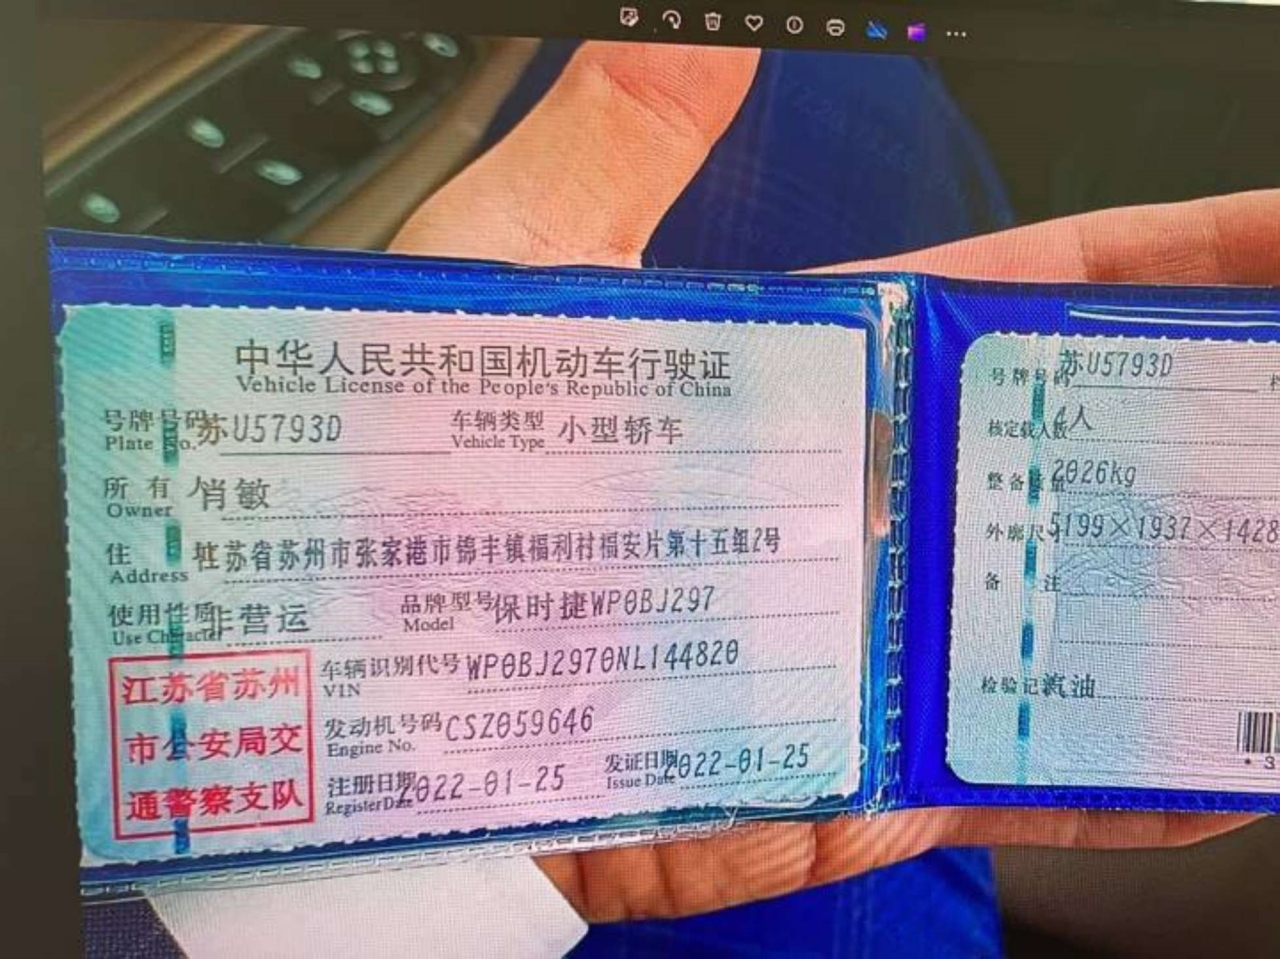 中华人民共和国机动车行驶证
Vehicle License of the People's Republic of China
号牌号码 苏U5793D 车辆类型 小型轿车
Plate No. Vehicle Type
所有人 肖敏
Owner
住址 江苏省苏州市张家港市锦丰镇福利村福安片第十五组2号
Address
使用性质 非营运 品牌型号 保时捷WP0BJ297
Use Character Model
江苏省苏州
市公安局交
通警察支队
车辆识别代号 WP0BJ2970NL144820
VIN
发动机号码 CSZ059646
Engine No.
注册日期 2022-01-25 发证日期 2022-01-25
Register Date Issue Date
号牌号码 苏U5793D
核定载人数 4人
整备质量 2026Kg
外廓尺 5199×1937×1428
备注
检验记 汽油